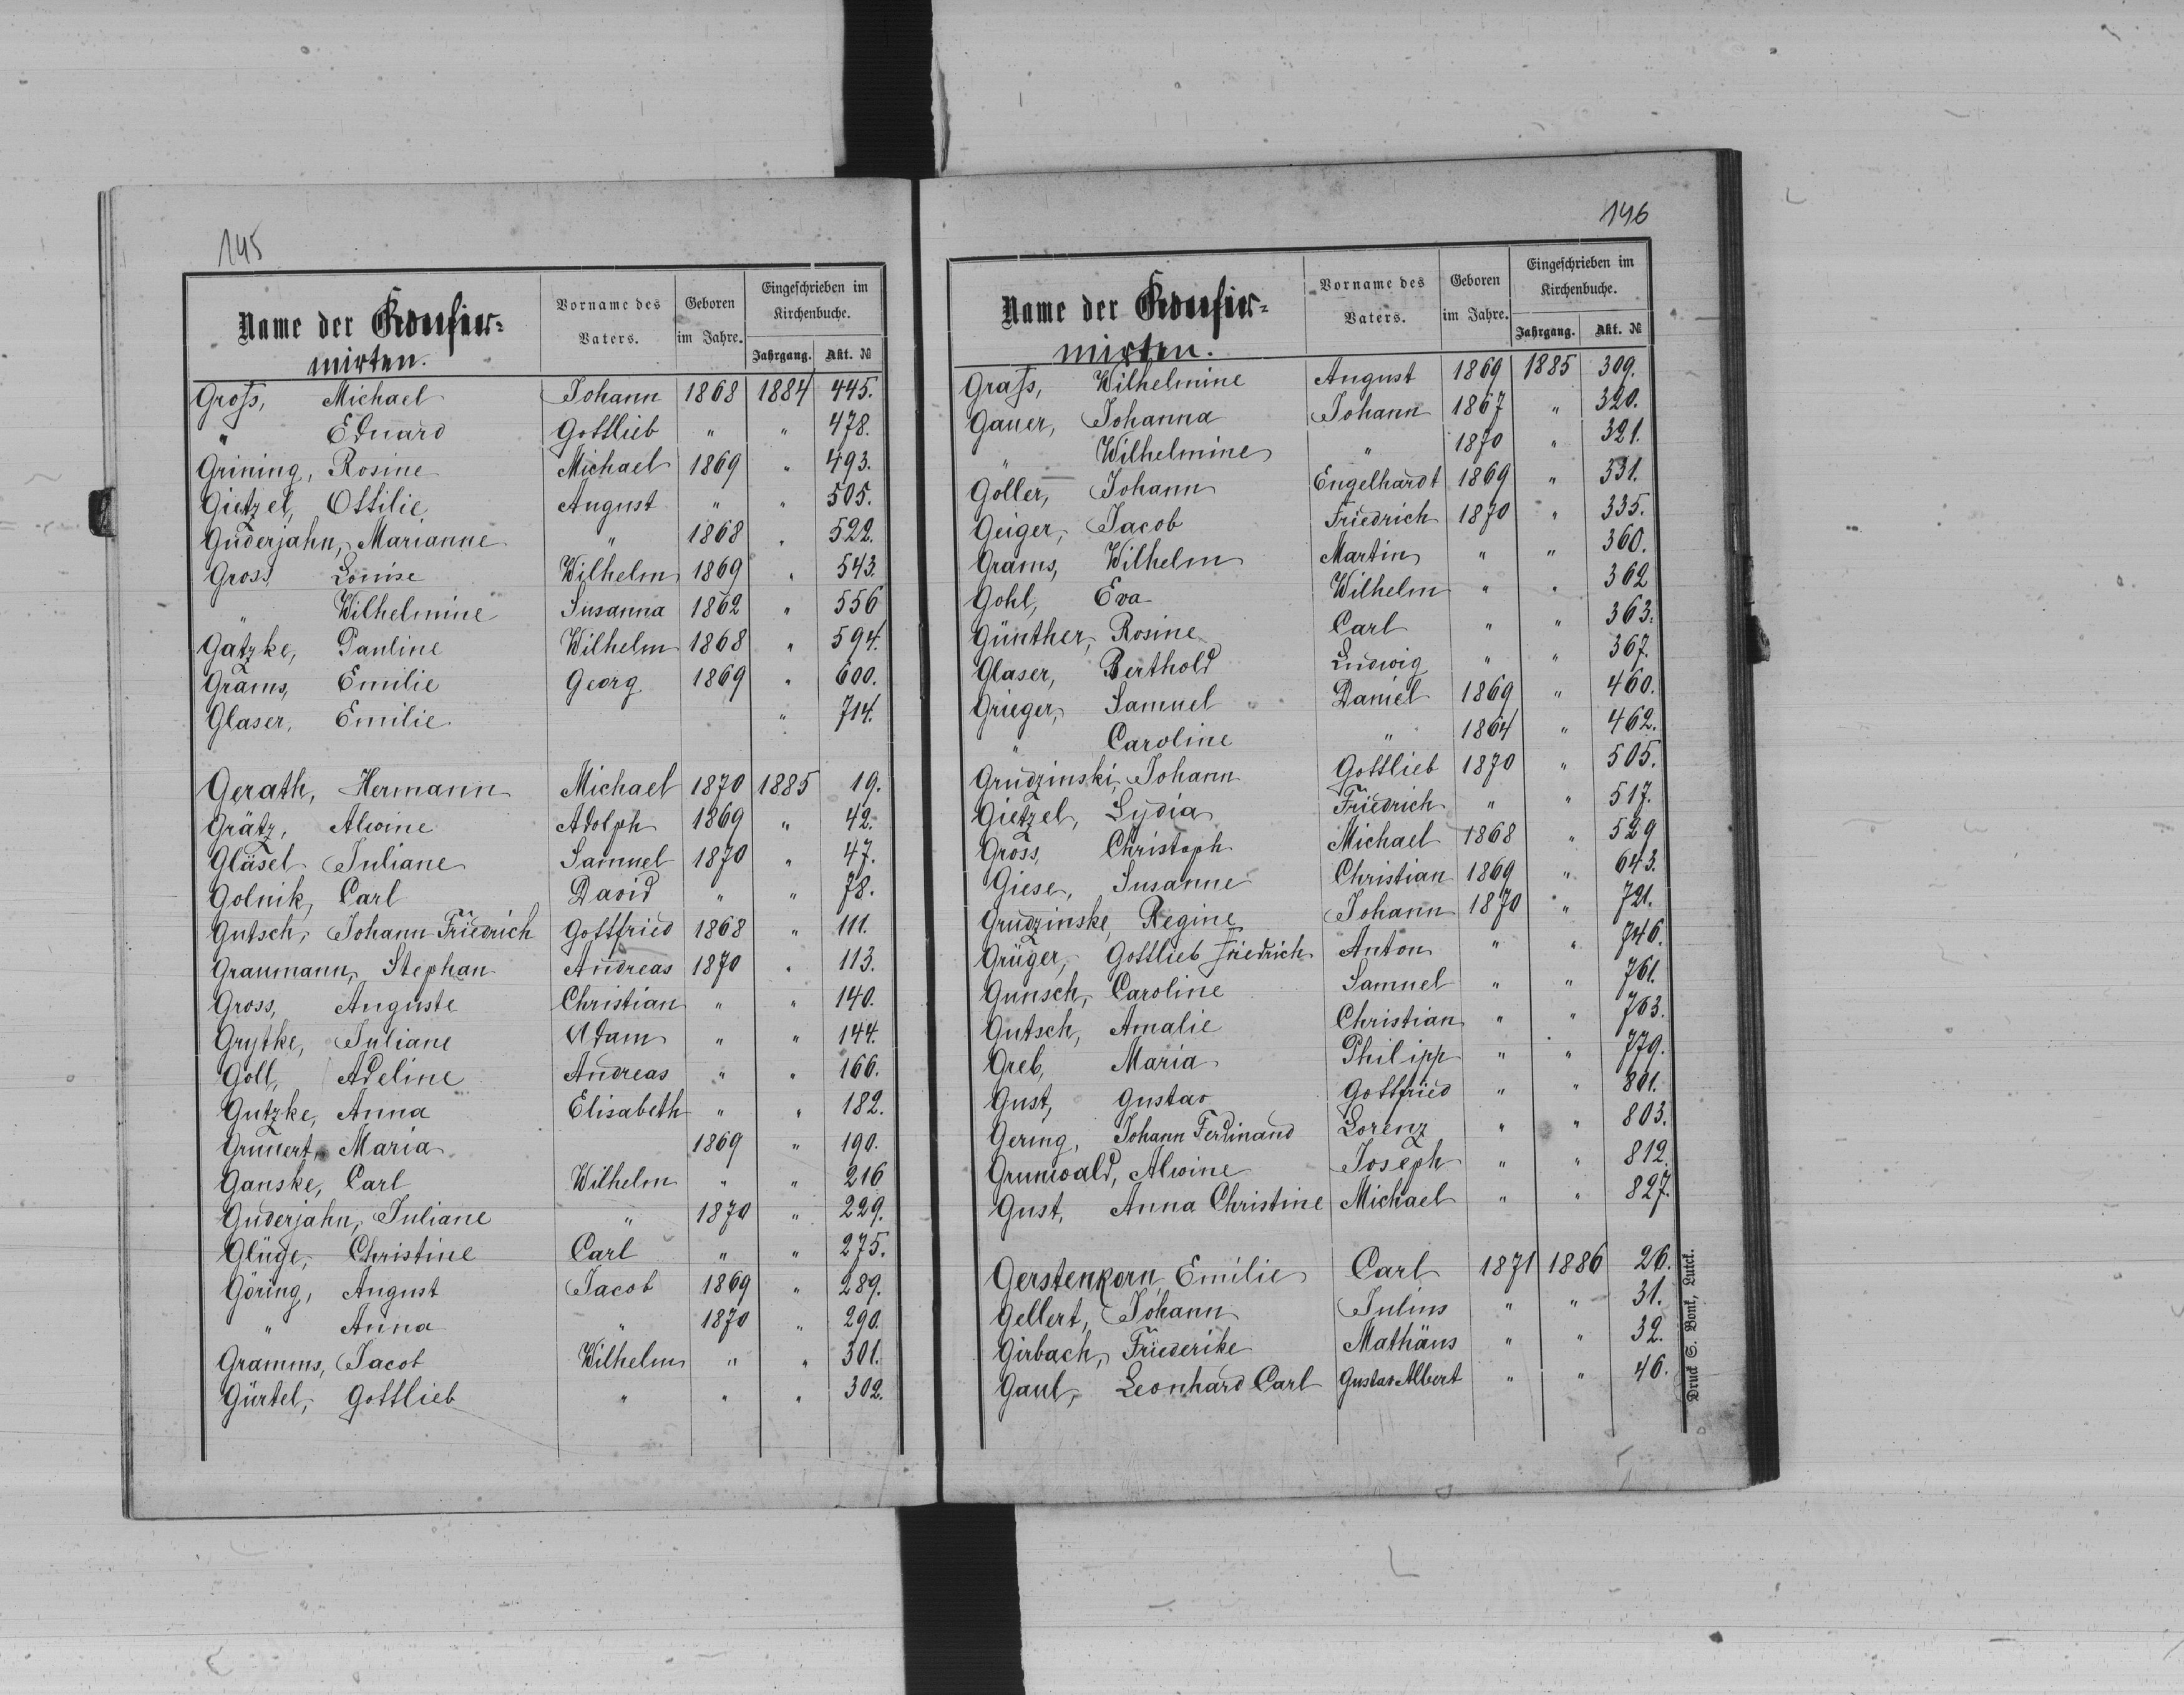 145
Name der Konfir-
mirten.
Vorname des Vaters.
Geboren im Jahre.
Eingeschrieben im Kirchenbuche.
Jahrgang. Akt. №
Groß, Michael Johann 1868 1884 445.
" Eduard Gottlieb " " 478.
Grining, Rosine Michael 1869 " 493.
Gietzel, Ottilie August " " 505.
Guderjahn, Marianne " 1868 " 522.
Gross, Louise Wilhelm 1869 " 543.
" Wilhelmine Susanna 1862 " 556
Gatzke, Pauline Wilhelm 1868 " 594.
Grams, Emilie Georg 1869 " 600.
Glaser, Emilie " 714.
Gerath, Hermann Michael 1870 1885 19.
Grätz, Alwine Adolph 1869 " 42.
Gläsel Juliane Samuel 1870 " 47.
Golnik, Carl David " " 78.
Gutsch, Johann Friedrich Gottfried 1868 " 111.
Graumann, Stephan Andreas 1870 " 113.
Gross, Auguste Christian " " 140.
Grytke, Juliane Adam " " 144.
Goll, Adeline Andreas " " 166.
Gutzke, Anna Elisabeth " " 182.
Grunert, Maria 1869 " 190.
Ganske, Carl Wilhelm " " 216
Guderjahn, Juliane " 1870 " 229.
Glüge, Christine Carl " " 275.
Göring, August Jacob 1869 " 289.
" Anna " 1870 " 290.
Gramms, Jacob Wilhelm " " 301.
Gürtel, Gottlieb " " " 302.
146
Name der Konfir-
mirten.
Vorname des Vaters.
Geboren im Jahre.
Eingeschrieben im Kirchenbuche.
Jahrgang. Akt. №
Graß, Wilhelmine August 1869 1885 309.
Gauer, Johanna Johann 1867 " 320.
" Wilhelmine " 1870 " 321.
Goller, Johann Engelhardt 1869 " 331.
Geiger, Jacob Friedrich 1870 " 335.
Grams, Wilhelm Martin " " 360.
Gohl, Eva Wilhelm " " 362
Günther, Rosine Carl " " 363.
Glaser, Berthold Ludwig " " 367.
Grieger, Samuel Daniel 1869 " 460.
" Caroline " 1864 " 462.
Grudzinski, Johann Gottlieb 1870 " 505.
Gietzel, Lydia Friedrich " " 517.
Gross, Christoph Michael 1868 " 529
Giese, Susanne Christian 1869 " 643.
Grudzinske, Regine Johann 1870 " 721.
Grüger, Gottlieb Friedrich Anton " " 746.
Gunsch, Caroline Samuel " " 761.
Gutsch, Amalie Christian " " 763.
Greb, Maria Philipp " " 779.
Gust, Gustav Gottfried " " 801.
Gering, Johann Ferdinand Lorenz " " 803.
Grunwald, Alwine Joseph " " 812.
Gust, Anna Christine Michael " " 827.
Gerstenkorn, Emilie Carl 1871 1886 26.
Gellert, Johann Julius " " 31.
Girbach, Friederike Mathäus " " 32.
Gaul, Leonhard Carl Gustav Albert " " 46.
Druck S. Bonk, Lutck.